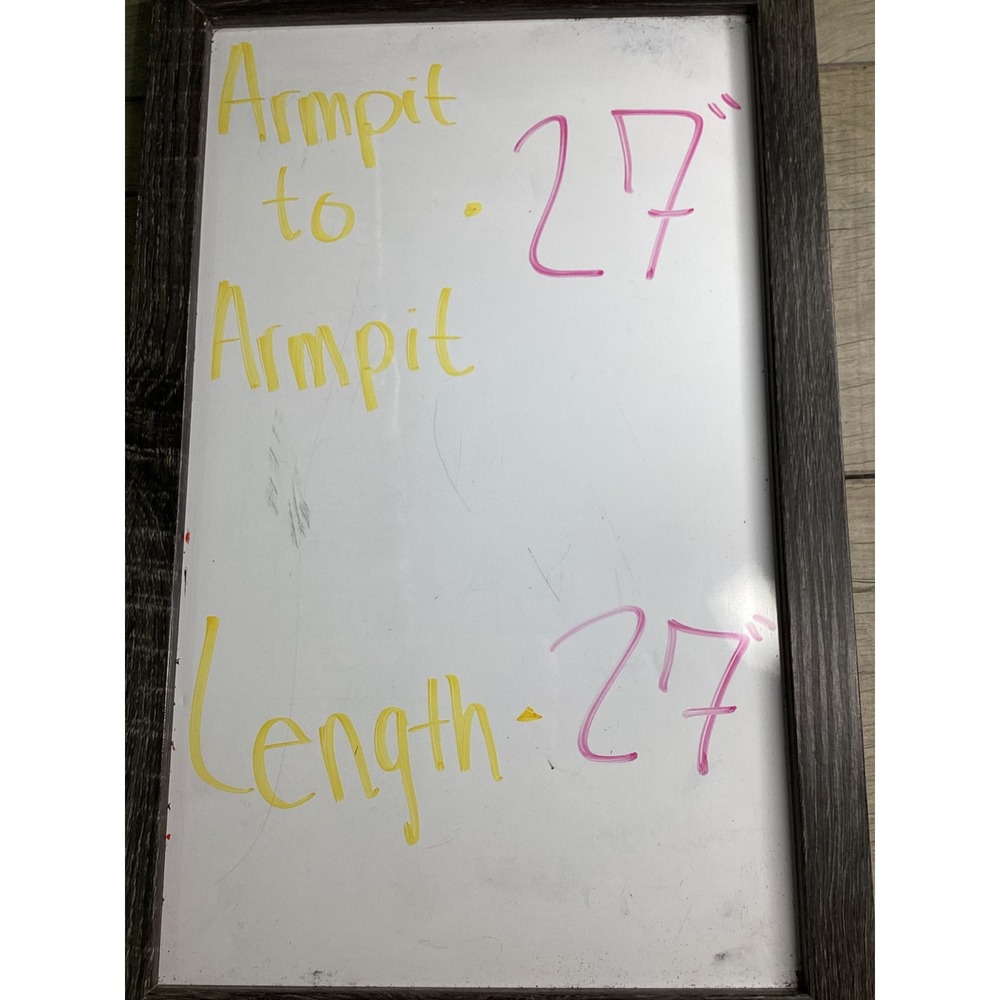 Armpit
to · 27"
Armpit
Length · 27"